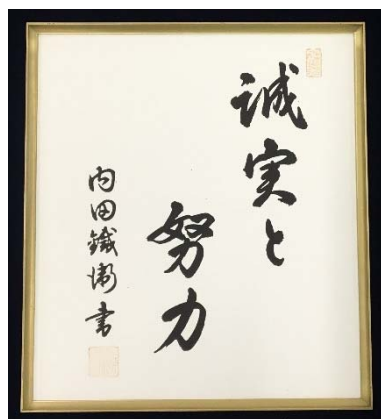 誠実と
努力
内田鐵衛書